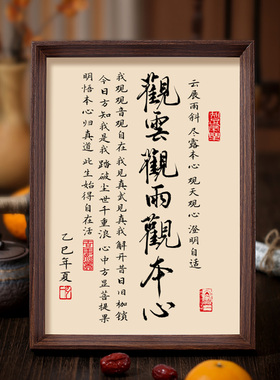 云展雨斜 尽露本心 观天观心 澄明自适
觀雲觀雨觀本心
我观观音观自在 我见真武见真我 解开昔日旧枷锁
今日方知我是我 踏破尘世千重浪 心中方显菩提果
明悟本心归真道 此生始得自在活
乙巳年夏